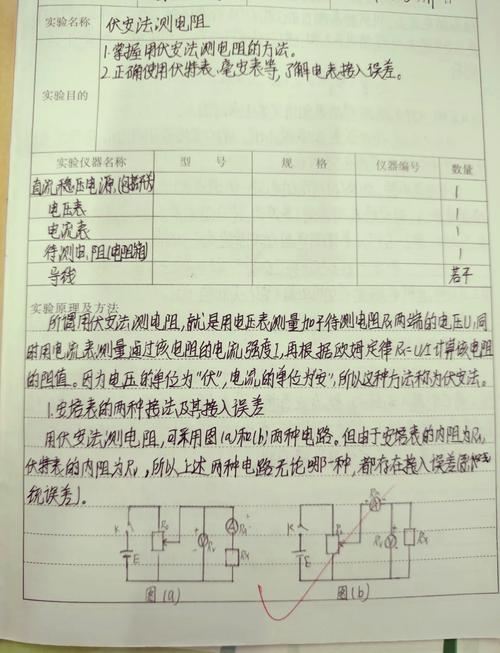 实验名称 伏安法测电阻
1.掌握用伏安法测电阻的方法。
2.正确使用伏特表、毫安表等,了解电表接入误差。
实验目的
实验仪器名称 型 号 规 格 仪器编号 数量
直流稳压电源 1
电压表 1
电流表 1
待测电阻(电阻箱) 1
导线 若干
实验原理及方法
所谓用伏安法测电阻,就是用电压表测量加于待测电阻Rx两端的电压U,同
时用电流表测量通过该电阻的电流强度I,再根据欧姆定律Rx=U/I计算该电阻
的阻值。因为电压的单位为“伏”,电流的单位为“安”,所以这种方法称为伏安法。
1.安培表的两种接法及其接入误差
用伏安法测电阻,可采用图(a)和(b)两种电路。但由于安培表的内阻为RA
伏特表的内阻为Rv,所以上述两种电路无论哪一种,都存在接入误差
统误差)。
K E R0 Rv A RA Rx
K E R0 RA Rv Rx
图(a) 图(b)